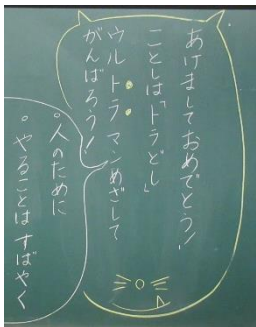 あけましておめでとう!
ことしは「トラどし」
ウルトラマンめざして
がんばろう!
。人のために
。やることはすばやく